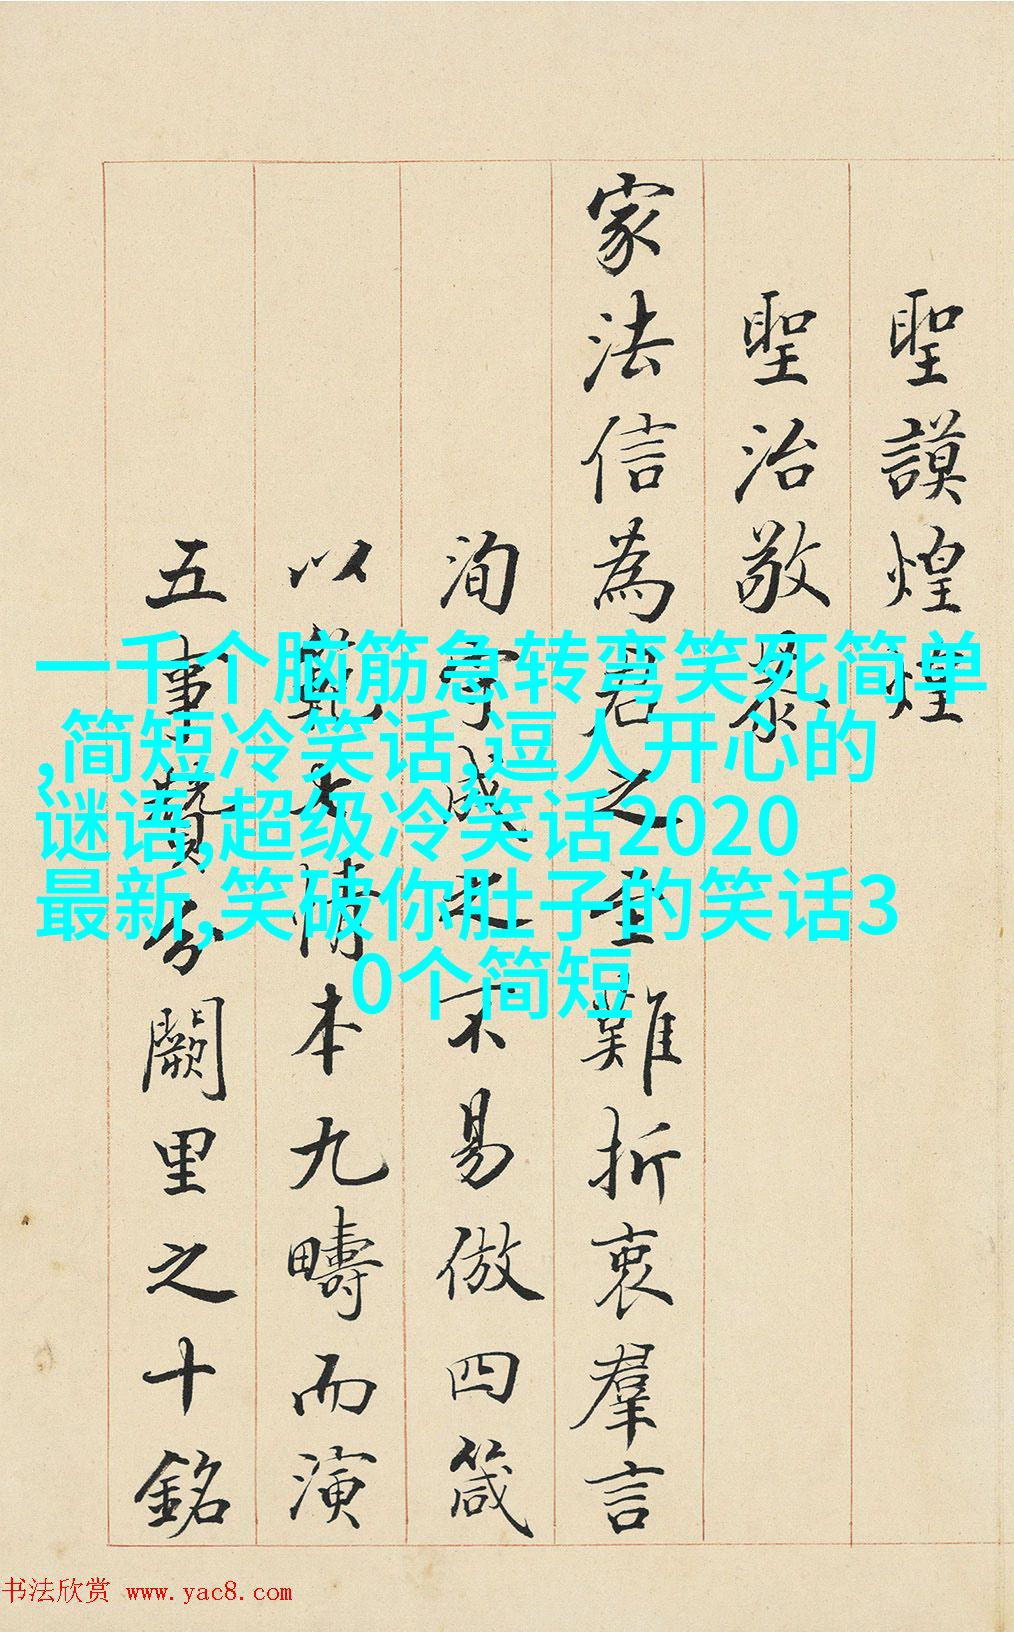 聖謨煌煌
聖治敬
家法信為君之至難折衷羣言
洵守成之不易倣四箴
以情本九疇而演
五事贊分闕里之十銘
一千个脑筋急转弯笑死简单
,简短冷笑话,逗人开心的
谜语,超级冷笑话2020
最新,笑破你肚子的笑话3
0个简短
书法欣赏 www.yac8.com